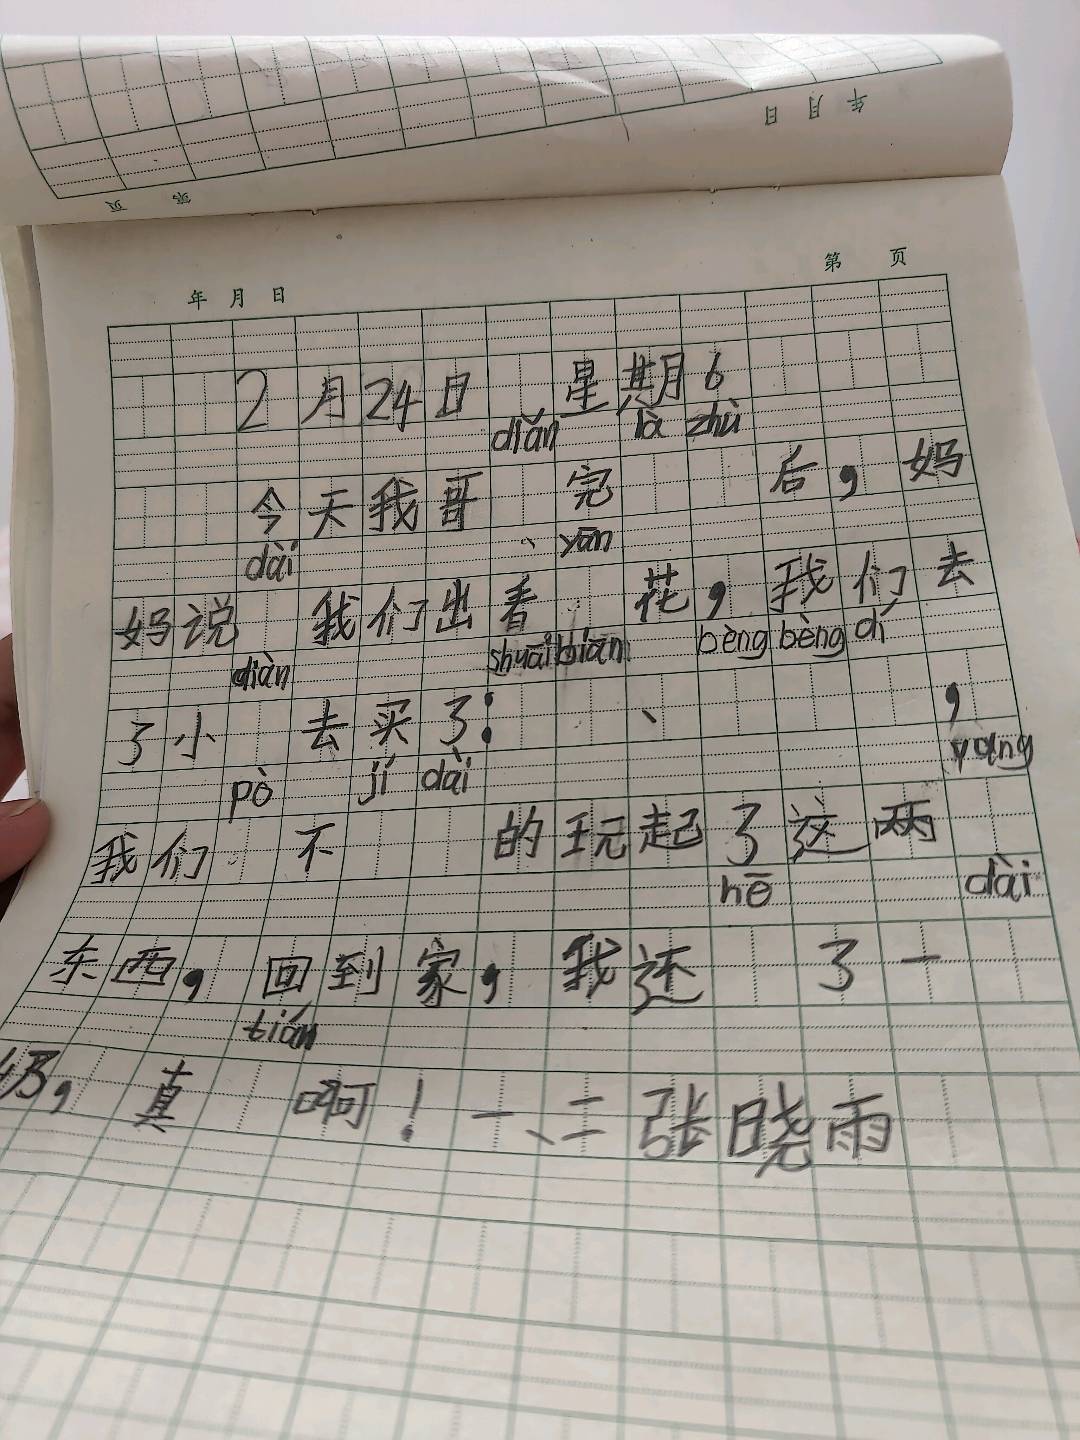 年 月 日
第 页
年 月 日
第 页
2月24日 星期6
diǎn là zhù
今天我哥 完 后，妈
dài 、 yān
妈说 我们出看 花，我们去
diàn shuāi biān bèng bèng dí
了小 去买了： 、 ，
pò jí dài yang
我们 不 的玩起了这两
hē dài
东西，回到家，我还 了一
tián
奶，真 啊！一、二张晓雨